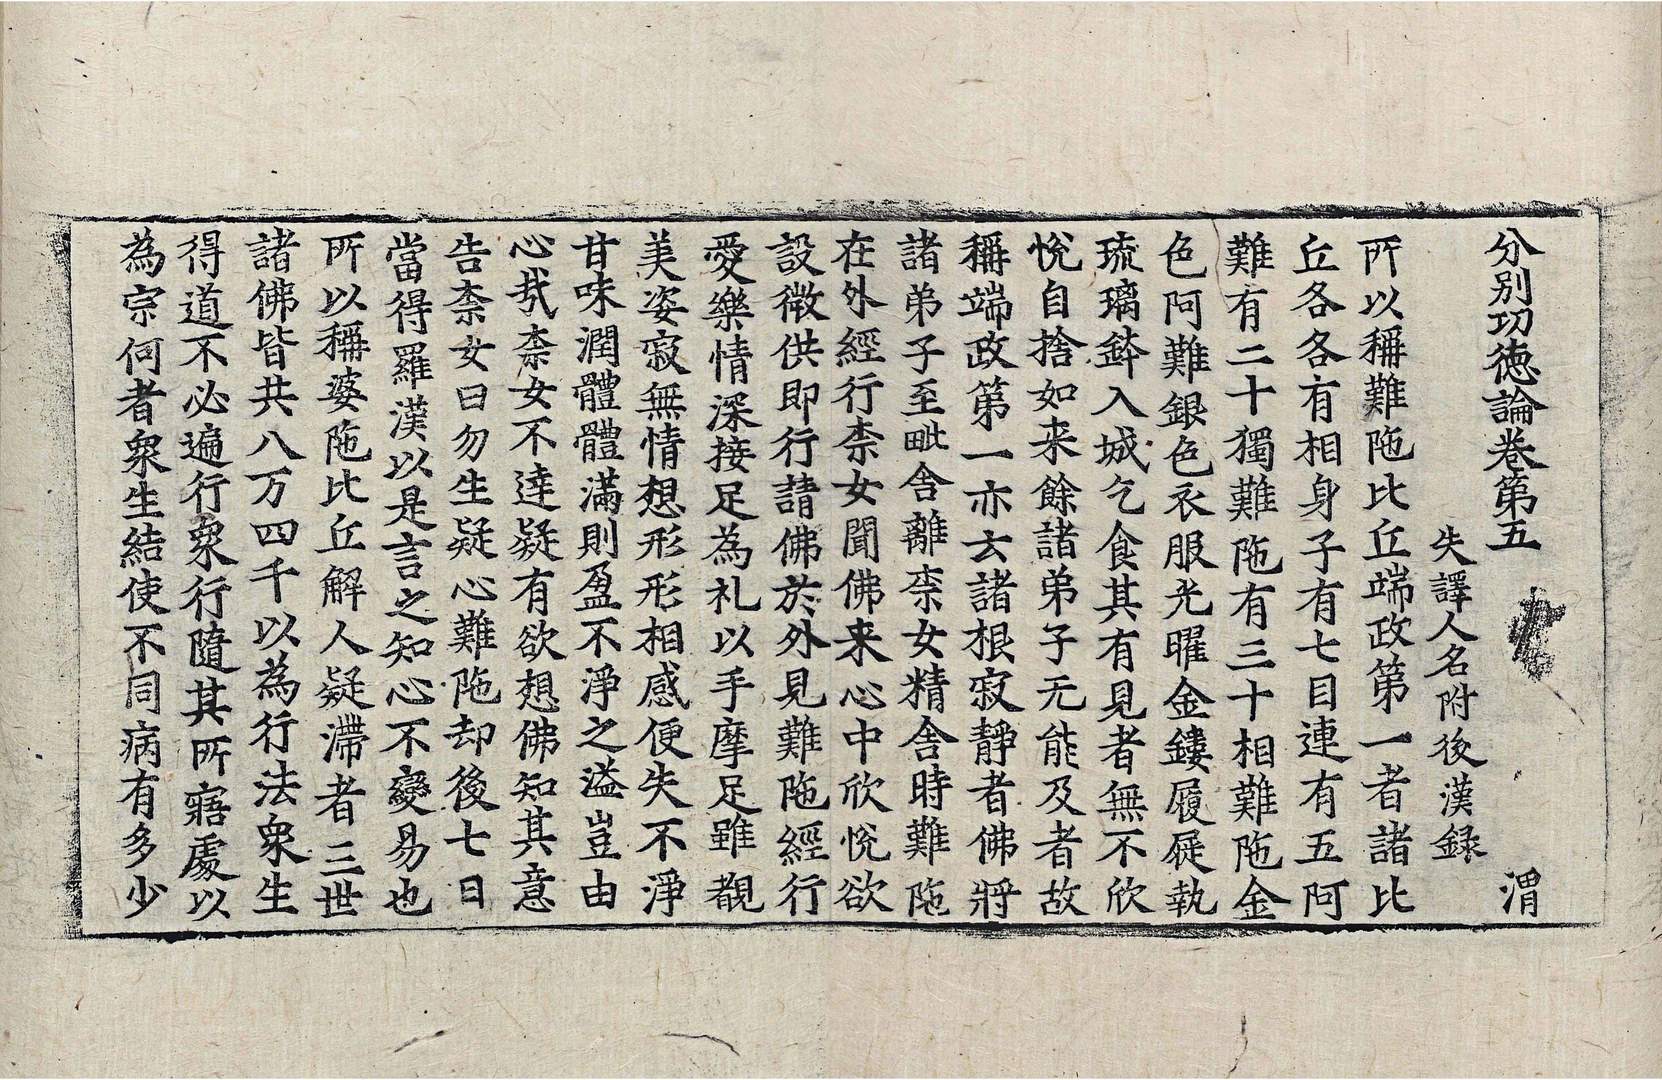 分別功徳論卷第五 渭
失譯人名附後漢録
所以稱難陁比丘端政第一者諸比
丘各各有相身子有七目連有五阿
難有二十獨難陁有三十相難陁金
色阿難銀色衣服光曜金鏤履屣執
琉璃鉢入城乞食其有見者無不欣
悅自捨如来餘諸弟子无能及者故
稱端政第一亦云諸根寂靜者佛將
諸弟子至毗舍離柰女精舍時難陁
在外經行柰女聞佛来心中欣悅欲
設微供即行請佛於外見難陁經行
愛樂情深接足為礼以手摩足雖覩
美姿寂無情想形形相感便失不淨
甘味潤體體滿則盈不淨之溢豈由
心㢤柰女不達疑有欲想佛知其意
告柰女曰勿生疑心難陁却後七日
當得羅漢以是言之知心不變易也
所以稱婆陁比丘解人疑滯者三世
諸佛皆共八万四千以為行法衆生
得道不必遍行衆行隨其所寤處以
為宗何者衆生結使不同病有多少